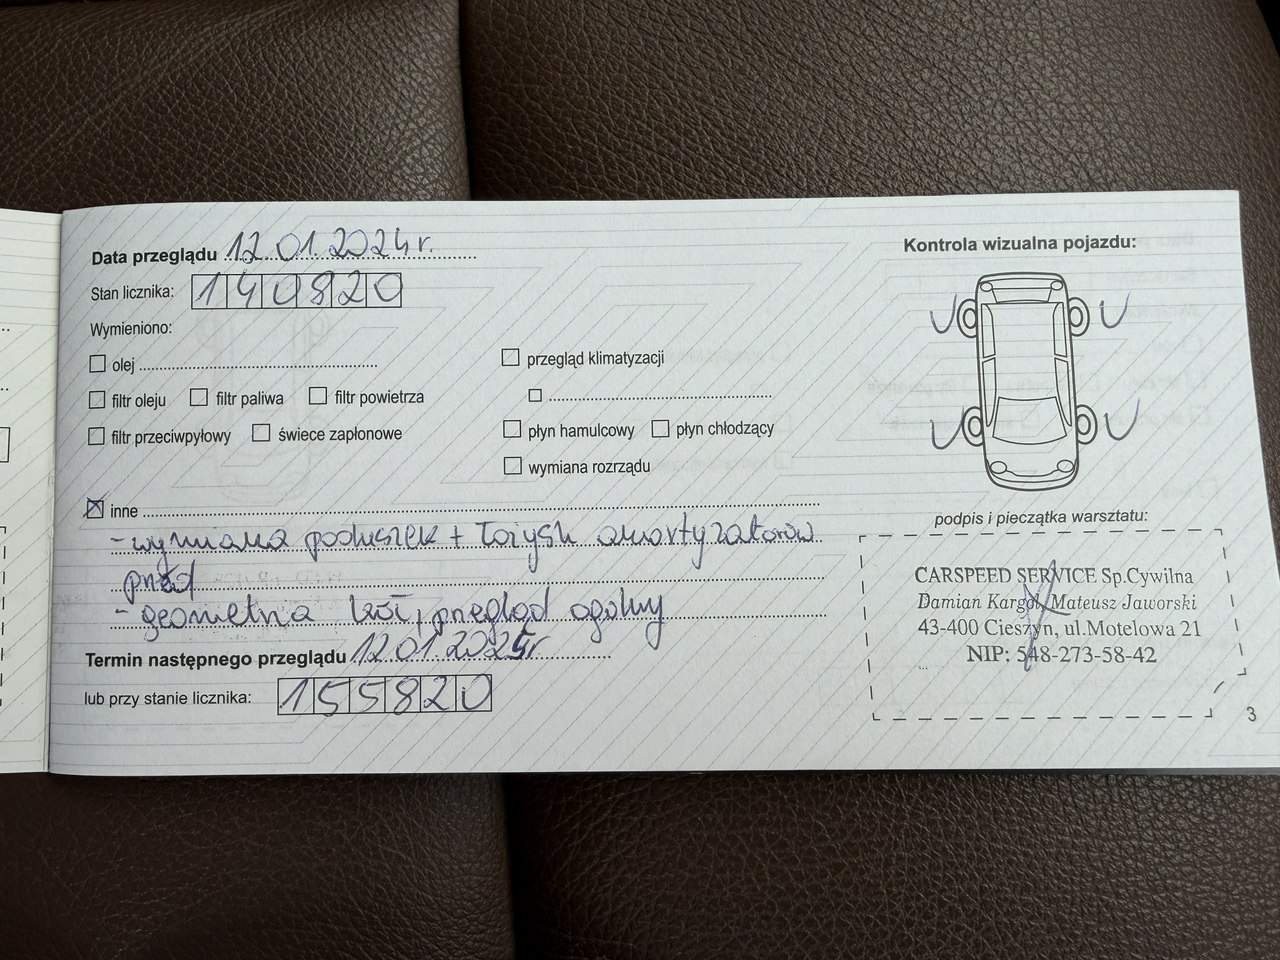 Data przeglądu 12.01.2024r.
Stan licznika: 140820
Wymieniono:
olej
filtr oleju filtr paliwa filtr powietrza
filtr przeciwpyłowy świece zapłonowe
przegląd klimatyzacji
płyn hamulcowy płyn chłodzący
wymiana rozrządu
inne
- wymiana poduszek + łożysk amortyzatorów
przód
- geometria kół, przegląd ogólny
Termin następnego przeglądu 12.01.2025r
lub przy stanie licznika: 155820
Kontrola wizualna pojazdu:
podpis i pieczątka warsztatu:
CARSPEED SERVICE Sp.Cywilna
Damian Kargol, Mateusz Jaworski
43-400 Cieszyn, ul.Motelowa 21
NIP: 548-273-58-42
3